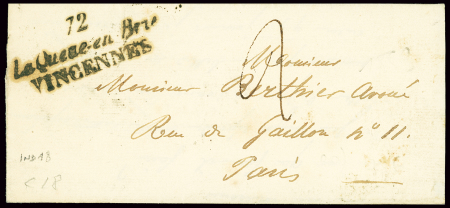 72
La Queue-en-Brie
VINCENNES
2
Monsieur
Monsieur Berthier avoué
Rue de Gaillon n° 11.
Paris
IND 18
< 18